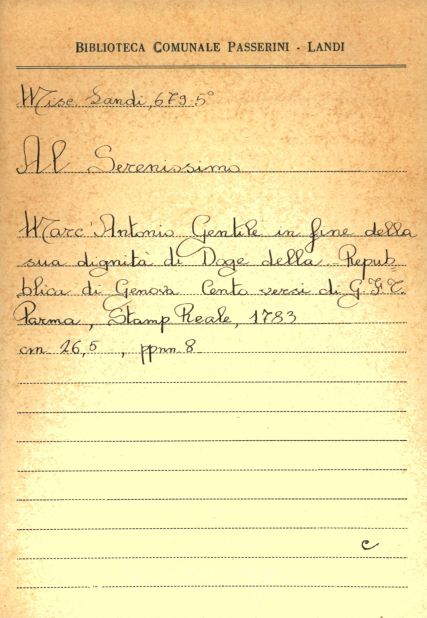 BIBLIOTECA COMUNALE PASSERINI - LANDI
Misc. Landi, 679.5°
Al Serenissimo
Marc'Antonio Gentile in fine della
sua dignità di Doge della Repub=
blica di Genova Cento versi di G.F.T.
Parma, Stamp Reale, 1783
cm 26,5 , ppnn 8
c